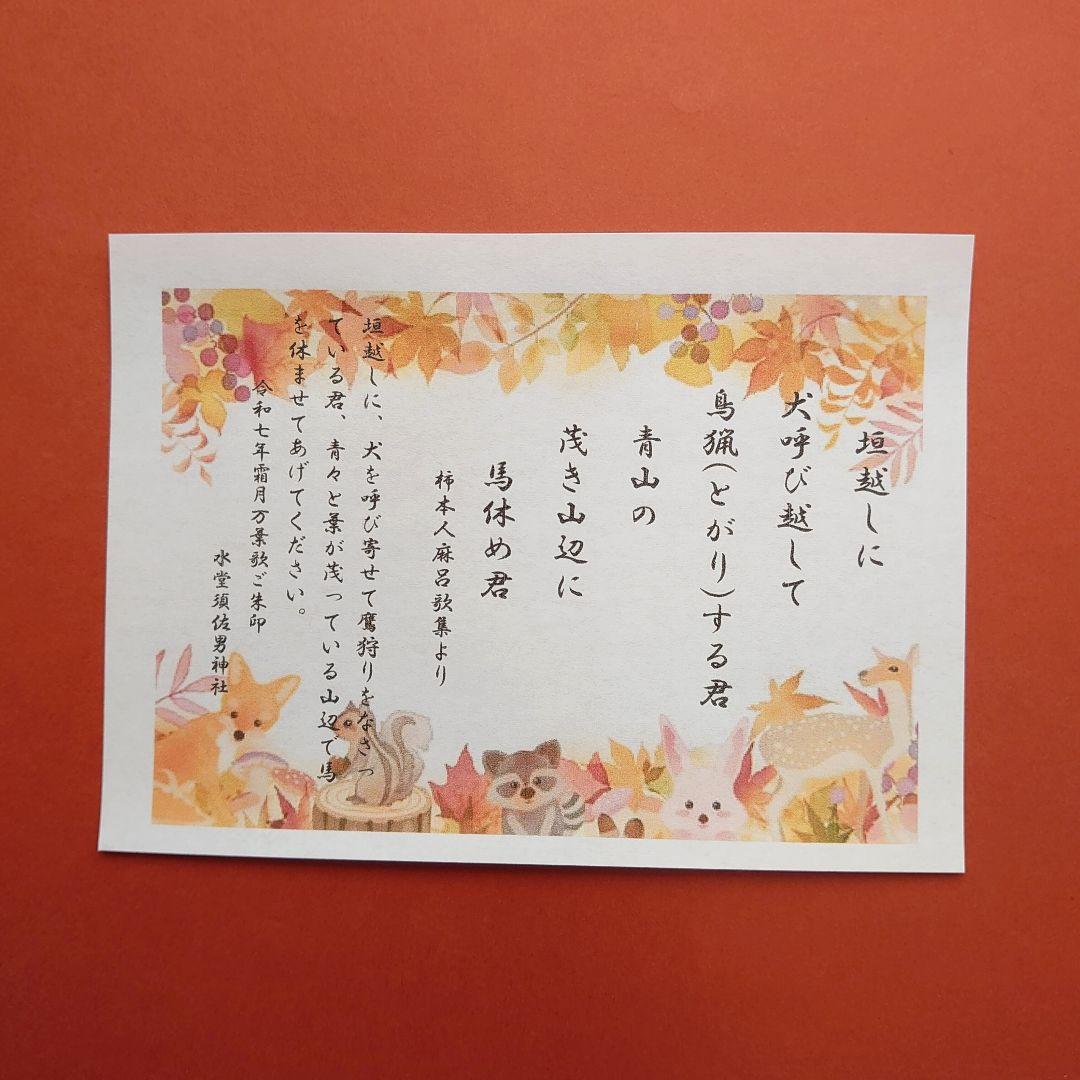 垣越しに
犬呼び越して
鳥猟(とがり)する君
青山の
茂き山辺に
馬休め君
柿本人麻呂歌集より
垣越しに、犬を呼び寄せて鷹狩りをなさっ
ている君、青々と葉が茂っている山辺で馬
を休ませてあげてください。
令和七年霜月万葉歌ご朱印
水堂須佐男神社